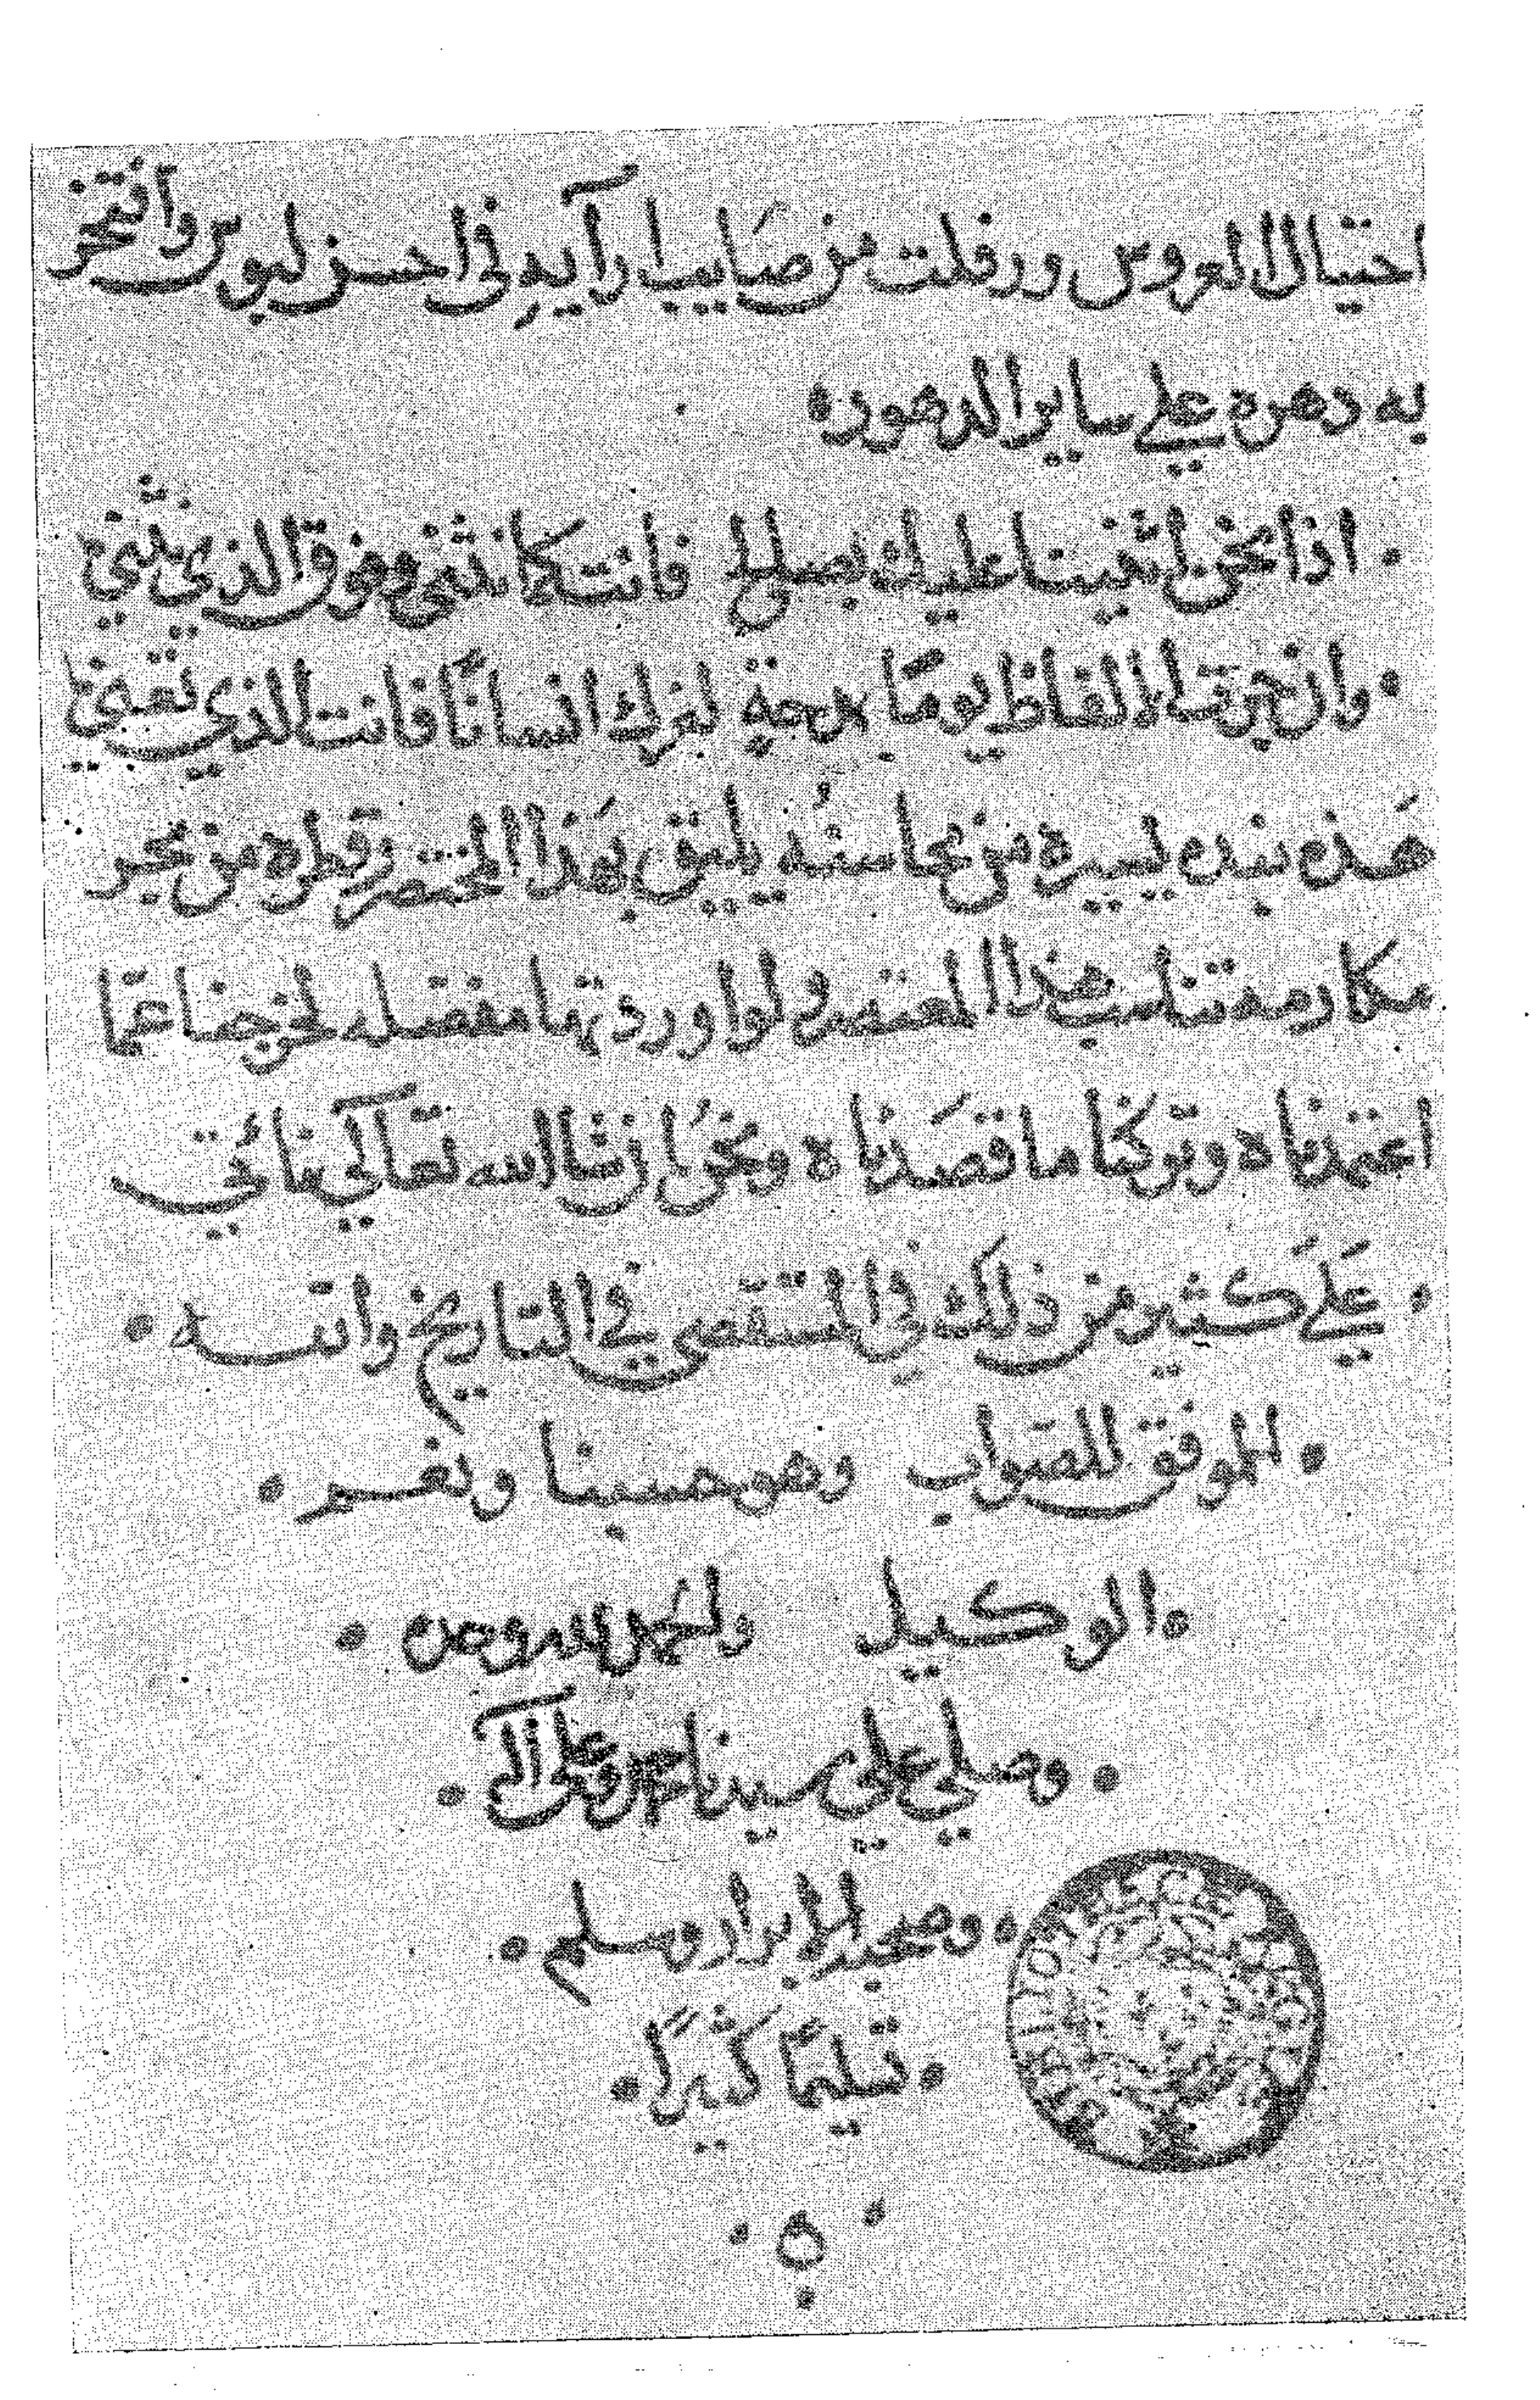 اختيال العروس ورفلت من صايب ارآيه في احسن لبوس وافتخر
به دهره علي ساير الدهوره
اذا نحن اثنينا عليك بصالح فانت كما نثني وفوق الذي نثني
وان جرت الالفاظ يومًا بمدحة لغيرك انسانًا فانت الذي نعني
هَذه نبذه يسيره من محاسنه يليق بهَذا المختصر وقطره من بحر
مكارمه تناسب هذا المعتصر ولو اوردتها مفصله لخرجنا عمّا
اعتمدناه وتركنا ما قصَدناه ونحنُ ان شا الله تعالي نائتي
عَلَي كثير من ذلك في المستقصي في التاريخ والله
الموفق للصواب وهو حسبنا ونعم
الوكيل والحمد لله وحده
وصلي علي سيدنا محمد وعلي آله
وصحبه الابرار وسلم
تسليمًا كثيرًا
ه